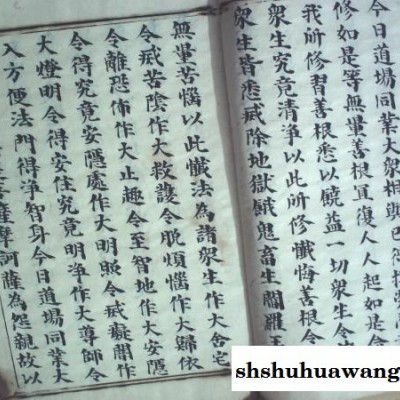 今日道場同業大衆相與已得
修如是等無量善根宜復人人起如是念
我所修習善根悉以饒益一切衆生令
衆生究竟清淨以此所修懺悔善根令
衆生皆悉滅除地獄餓鬼畜生閻羅王
無量苦惱以此懺法為諸衆生作大舍宅
令滅苦陰作大救護令脫煩惱作大歸依
令離恐怖作大止趣令至智地作大安隱
令得究竟安隱處作大明照令滅癡闇作
大燈明令得安住究竟明淨作大導師令
入方便法門得淨智身今日道場同業大
菩薩摩訶薩為怨親故以
shshuhuawang